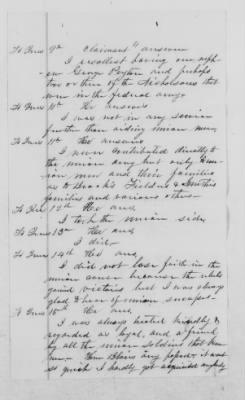 To Ques 9th Claimant answers
I recollect having one neph-
ew George Peyton and perhaps
two or three of the Nicholsons that
were in the federal army
To Ques 10th He answers
I was not in any service
further than aiding union men
To Ques 11th He answers
I never contributed directly to
the union army but only to un-
ion men and their families
as to Brooks Fields &
families and various others
To Ques 12th He ans
I took the union side
To Ques 13th He ans
I did
To Ques 14th He ans
I did not lose faith in the
union cause because the rebels
gained victories but I was always
glad to hear of union success
To Ques 15th He ans
I was always treated kindly &
regarded as loyal, and a friend
by all the union soldiers that knew
me. Gen Blairs army passed, it was
so quick I hardly got acquainted anybody